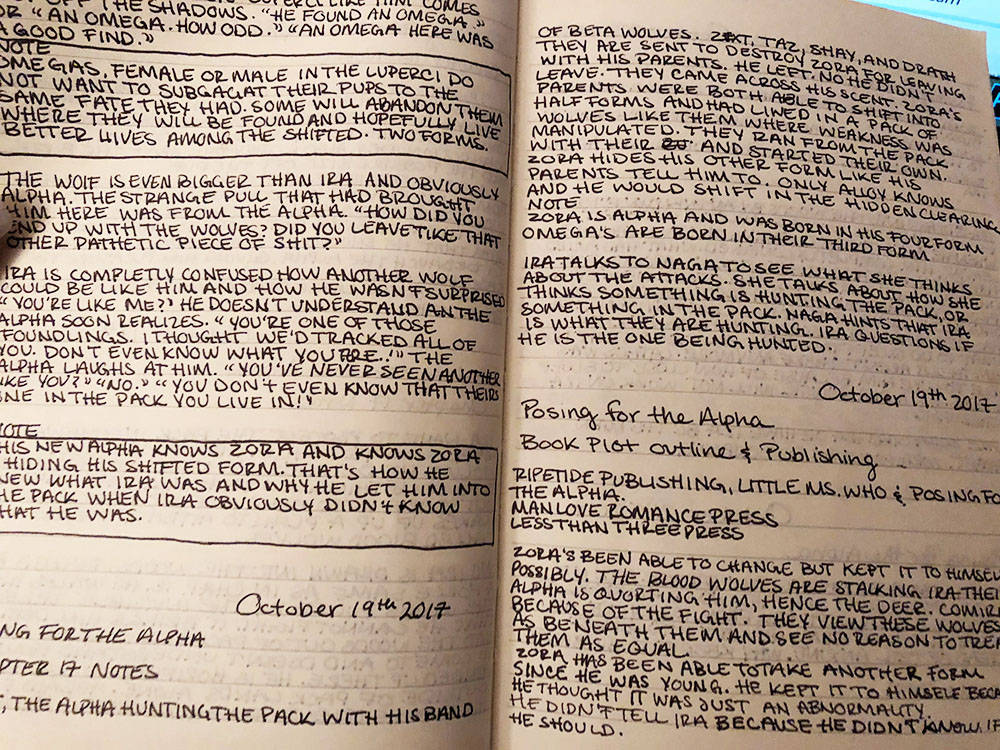 OFF THE SHADOWS. "HE FOUND AN OMEGA."
OR "AN OMEGA. HOW ODD." "AN OMEGA HERE WAS
A GOOD FIND."
NOTE
OMEGAS, FEMALE OR MALE IN THE LUPERCI DO
NOT WANT TO SUBGAGAT THEIR PUPS TO THE
SAME FATE THEY HAD. SOME WILL ABANDON THEM
WHERE THEY WILL BE FOUND AND HOPEFULLY LIVE
BETTER LIVES AMONG THE SHIFTED. TWO FORMS.
THE WOLF IS EVEN BIGGER THAN IRA AND OBVIOUSLY
ALPHA. THE STRANGE PULL THAT HAD BROUGHT
HIM HERE WAS FROM THE ALPHA. "HOW DID YOU
END UP WITH THE WOLVES? DID YOU LEAVE LIKE THAT
OTHER PATHETIC PIECE OF SHIT?"
IRA IS COMPLETLY CONFUSED HOW ANOTHER WOLF
COULD BE LIKE HIM AND HOW HE WASN'T SURPRISED
"YOU'RE LIKE ME?" HE DOESN'T UNDERSTAND AN THE
ALPHA SOON REALIZES. "YOU'RE ONE OF THOSE
FOUNDLINGS. I THOUGHT WE'D TRACKED ALL OF
YOU. DON'T EVEN KNOW WHAT YOU ARE!" THE
ALPHA LAUGHS AT HIM. "YOU'VE NEVER SEEN ANOTHER
LIKE YOU?" "NO." "YOU DON'T EVEN KNOW THAT THEIRS
ONE IN THE PACK YOU LIVE IN!"
NOTE
HIS NEW ALPHA KNOWS ZORA AND KNOWS ZORA
HIDING HIS SHIFTED FORM. THAT'S HOW HE
NEW WHAT IRA WAS AND WHY HE LET HIM INTO
HE PACK WHEN IRA OBVIOUSLY DIDN'T KNOW
HAT HE WAS.
October 19th 2017
NG FOR THE ALPHA
PTER 17 NOTES
, THE ALPHA HUNTING THE PACK WITH HIS BAND
OF BETA WOLVES. ZEXT, TAZ, SHAY, AND DRATH
THEY ARE SENT TO DESTROY ZORA FOR LEAVING
WITH HIS PARENTS. HE LEFT. NO HE DIDN'T
LEAVE. THEY CAME ACROSS HIS SCENT. ZORA'S
PARENTS WERE BOTH ABLE TO SHIFT INTO
HALF FORMS AND HAD LINED IN A PACK OF
WOLVES LIKE THEM WHERE WEAKNESS WAS
MANIPULATED. THEY RAN FROM THE PACK
WITH THEIR AND STARTED THEIR OWN.
ZORA HIDES HIS OTHER FORM LIKE HIS
PARENTS TELL HIM TO. ONLY ALLOY KNOWS
AND HE WOULD SHIFT IN THE HIDDEN CLEARING
NOTE
ZORA IS ALPHA AND WAS BORN IN HIS FOUR FORM
OMEGA'S ARE BORN IN THEIR THIRD FORM
IRA TALKS TO NAGA TO SEE WHAT SHE THINKS
ABOUT THE ATTACKS. SHE TALKS ABOUT HOW SHE
THINKS SOMETHING IS HUNTING THE PACK, OR
SOMETHING IN THE PACK. NAGA HINTS THAT IRA
IS WHAT THEY ARE HUNTING. IRA QUESTIONS IF
HE IS THE ONE BEING HUNTED.
October 19th 2017
Posing for the Alpha
Book Plot outline & Publishing
RIPTIDE PUBLISHING, LITTLE MS. WHO & POSING FO
THE ALPHA.
MAN LOVE ROMANCE PRESS
LESS THAN THREE PRESS
ZORA'S BEEN ABLE TO CHANGE BUT KEPT IT TO HIMSEL
POSSIBLY. THE BLOOD WOLVES ARE STALKING IRA-THEIR
ALPHA IS QUORTING HIM, HENCE THE DEER. COMIN
BECAUSE OF THE FIGHT. THEY VIEW THESE WOLVES
AS BENEATH THEM AND SEE NO REASON TO TREA
THEM AS EQUAL.
ZORA HAS BEEN ABLE TO TAKE ANOTHER FORM
SINCE HE WAS YOUNG. HE KEPT IT TO HIMSELF BECA
HE THOUGHT IT WAS JUST AN ABNORMALITY.
HE DIDN'T TELL IRA BECAUSE HE DIDN'T KNOW IF
HE SHOULD.